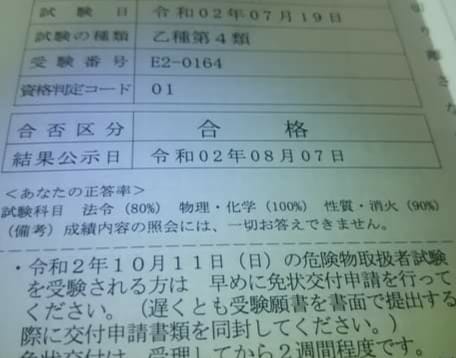 試験日 令和02年07月19日
試験の種類 乙種第４類
受験番号 E2-0164
資格判定コード 01
合否区分 合格
結果公示日 令和02年08月07日
＜あなたの正答率＞
試験科目 法令（80%） 物理・化学（100%） 性質・消火（90%）
（備考）成績内容の照会には、一切お答えできません。
・令和２年１０月１１日（日）の危険物取扱者試験
を受験される方は 早めに免状交付申請を行って
ください。（遅くとも受験願書を書面で提出する
際に交付申請書類を同封してください。）
免状交付は、受理してから２週間程度です。